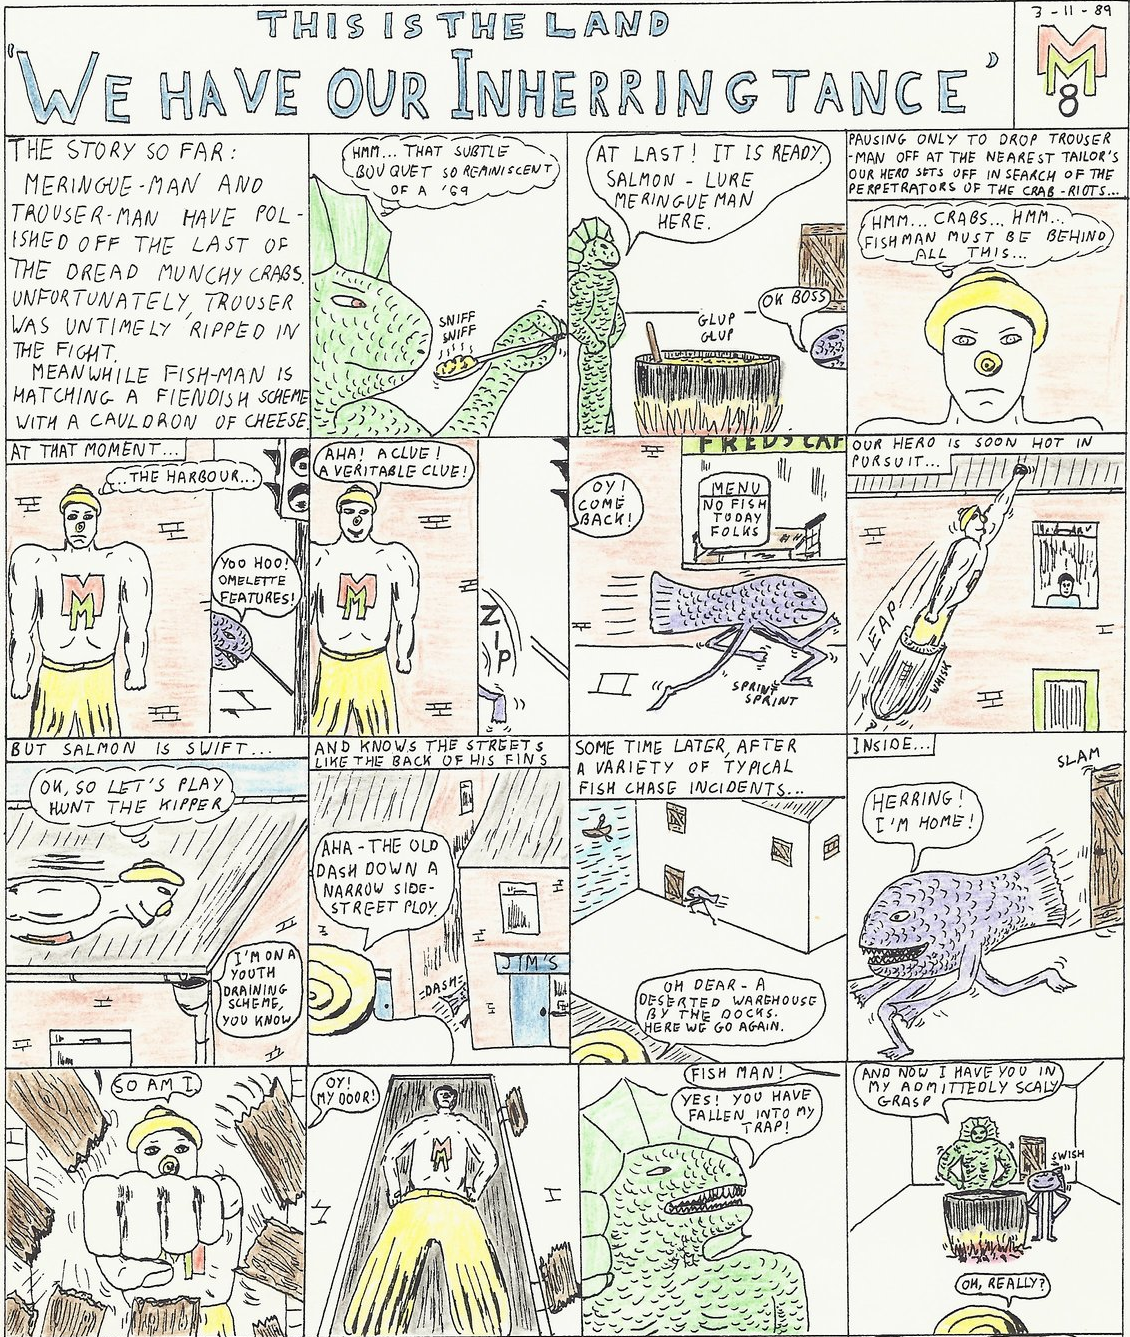 THIS IS THE LAND
"WE HAVE OUR INHERRINGTANCE"
3-11-89
MM
8
THE STORY SO FAR:
MERINGUE-MAN AND
TROUSER-MAN HAVE POL-
ISHED OFF THE LAST OF
THE DREAD MUNCHY CRABS.
UNFORTUNATELY, TROUSER
WAS UNTIMELY RIPPED IN
THE FIGHT.
MEANWHILE FISH-MAN IS
HATCHING A FIENDISH SCHEME
WITH A CAULDRON OF CHEESE.
HMM... THAT SUBTLE
BOUQUET SO REMINISCENT
OF A '69
SNIFF
SNIFF
AT LAST! IT IS READY.
SALMON - LURE
MERINGUE MAN
HERE.
OK BOSS
GLUP
GLUP
PAUSING ONLY TO DROP TROUSER
-MAN OFF AT THE NEAREST TAILOR'S
OUR HERO SETS OFF IN SEARCH OF THE
PERPETRATORS OF THE CRAB-RIOTS...
HMM... CRABS... HMM...
FISHMAN MUST BE BEHIND
ALL THIS...
AT THAT MOMENT...
...THE HARBOUR...
YOO HOO!
OMELETTE
FEATURES!
MM
AHA! A CLUE!
A VERITABLE CLUE!
MM
ZIP
FRED'S CAF
OY!
COME
BACK!
MENU
NO FISH
TODAY
FOLKS
SPRINT
SPRINT
OUR HERO IS SOON HOT IN
PURSUIT...
LEAP
WHISK
BUT SALMON IS SWIFT...
OK, SO LET'S PLAY
HUNT THE KIPPER
I'M ON A
YOUTH
DRAINING
SCHEME,
YOU KNOW
AND KNOWS THE STREETS
LIKE THE BACK OF HIS FINS
AHA - THE OLD
DASH DOWN A
NARROW SIDE-
STREET PLOY.
JIM'S
DASH
SOME TIME LATER, AFTER
A VARIETY OF TYPICAL
FISH CHASE INCIDENTS...
OH DEAR - A
DESERTED WAREHOUSE
BY THE DOCKS.
HERE WE GO AGAIN.
INSIDE...
SLAM
HERRING!
I'M HOME!
SO AM I.
OY!
MY DOOR!
MM
FISH MAN!
YES! YOU HAVE
FALLEN INTO MY
TRAP!
AND NOW I HAVE YOU IN
MY ADMITTEDLY SCALY
GRASP
SWISH
OH, REALLY?